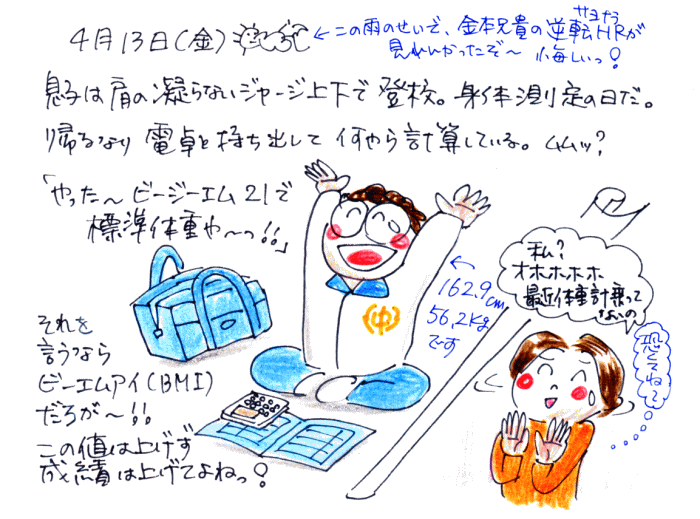 4月13日(金)
←この雨のせいで、金本兄貴の逆転HRが
サヨナラ
見れんかったぞ〜 悔しいっ!
息子は肩の凝らないジャージ上下で登校。身体測定の日だ。
帰るなり電卓を持ち出して何やら計算している。ムムッ?
「やった〜ビージーエム21で
標準体重や〜っ!!」
←
162.9cm
56.2kg
です
中
それを
言うなら
ビーエムアイ(BMI)
だろが〜!!
この値は上げず
成績は上げてよねっ!
私?
オホホホホ
最近体重計乗って
ないの
恐くてね〜